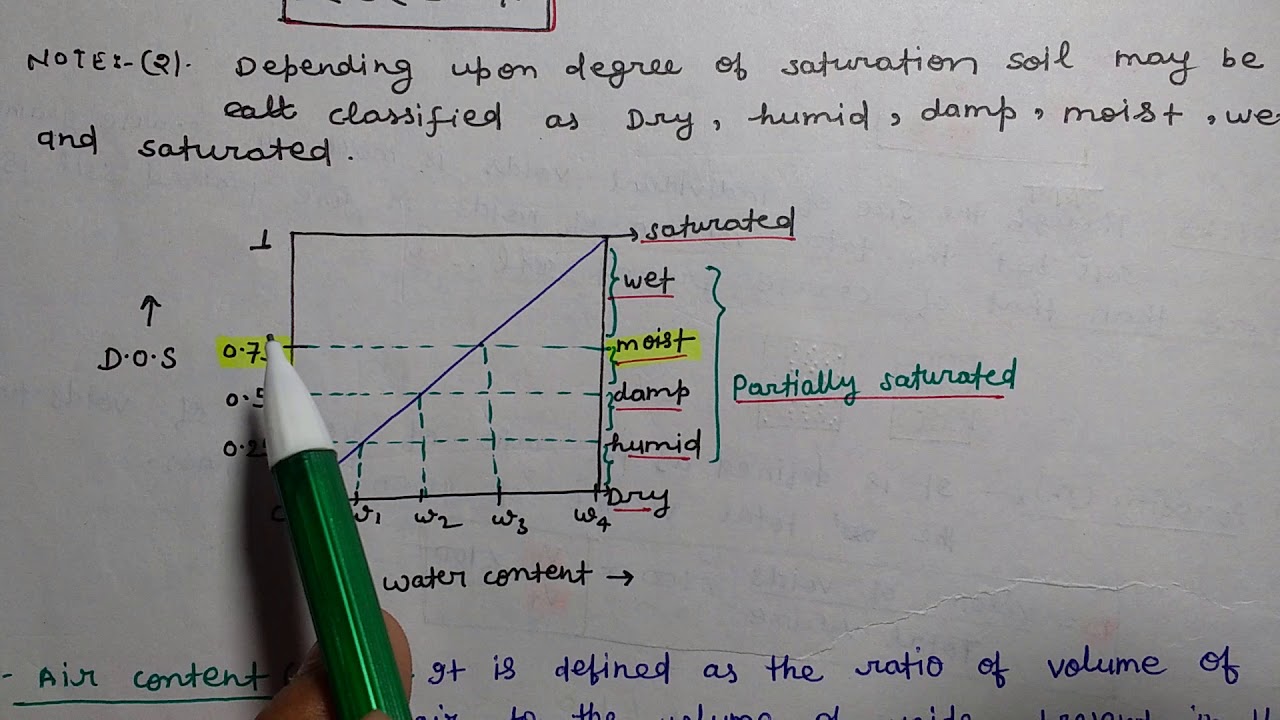 NOTE:-(2). Depending upon degree of saturation soil may be
classified as Dry, humid, damp, moist, we
and saturated.
1
saturated
wet
D.O.S
0.75
moist
Partially saturated
damp
humid
Dry
w1 w2 w3 w4
water content →
Air content
It is defined as the ratio of volume of